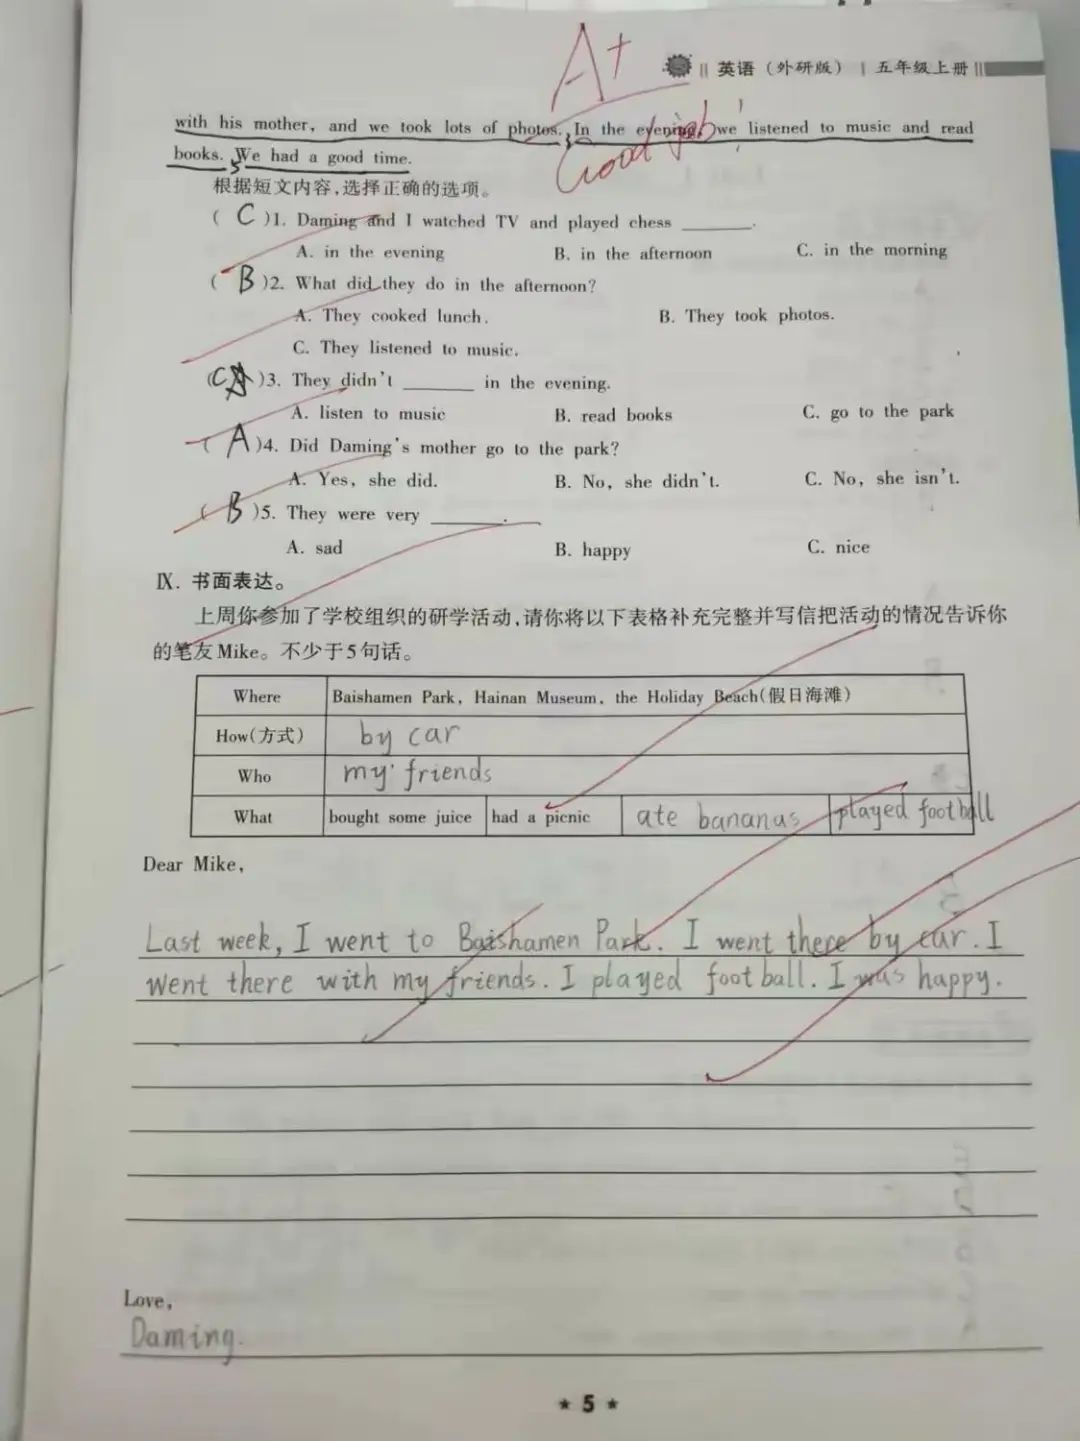 A+
英语（外研版） | 五年级上册
Good job!
with his mother, and we took lots of photos. In the evening, we listened to music and read
books. We had a good time.
根据短文内容,选择正确的选项。
( C )1. Daming and I watched TV and played chess ______.
A. in the evening B. in the afternoon C. in the morning
( B )2. What did they do in the afternoon?
A. They cooked lunch. B. They took photos.
C. They listened to music.
( C )3. They didn't ______ in the evening.
A. listen to music B. read books C. go to the park
( A )4. Did Daming's mother go to the park?
A. Yes, she did. B. No, she didn't. C. No, she isn't.
( B )5. They were very ______.
A. sad B. happy C. nice
Ⅸ. 书面表达。
上周你参加了学校组织的研学活动,请你将以下表格补充完整并写信把活动的情况告诉你
的笔友Mike。不少于5句话。
Where Baishamen Park, Hainan Museum, the Holiday Beach(假日海滩)
How(方式) by car
Who my friends
What bought some juice had a picnic ate bananas played football
Dear Mike,
Last week, I went to Baishamen Park. I went there by car. I
went there with my friends. I played football. I was happy.
Love,
Daming.
★ 5 ★